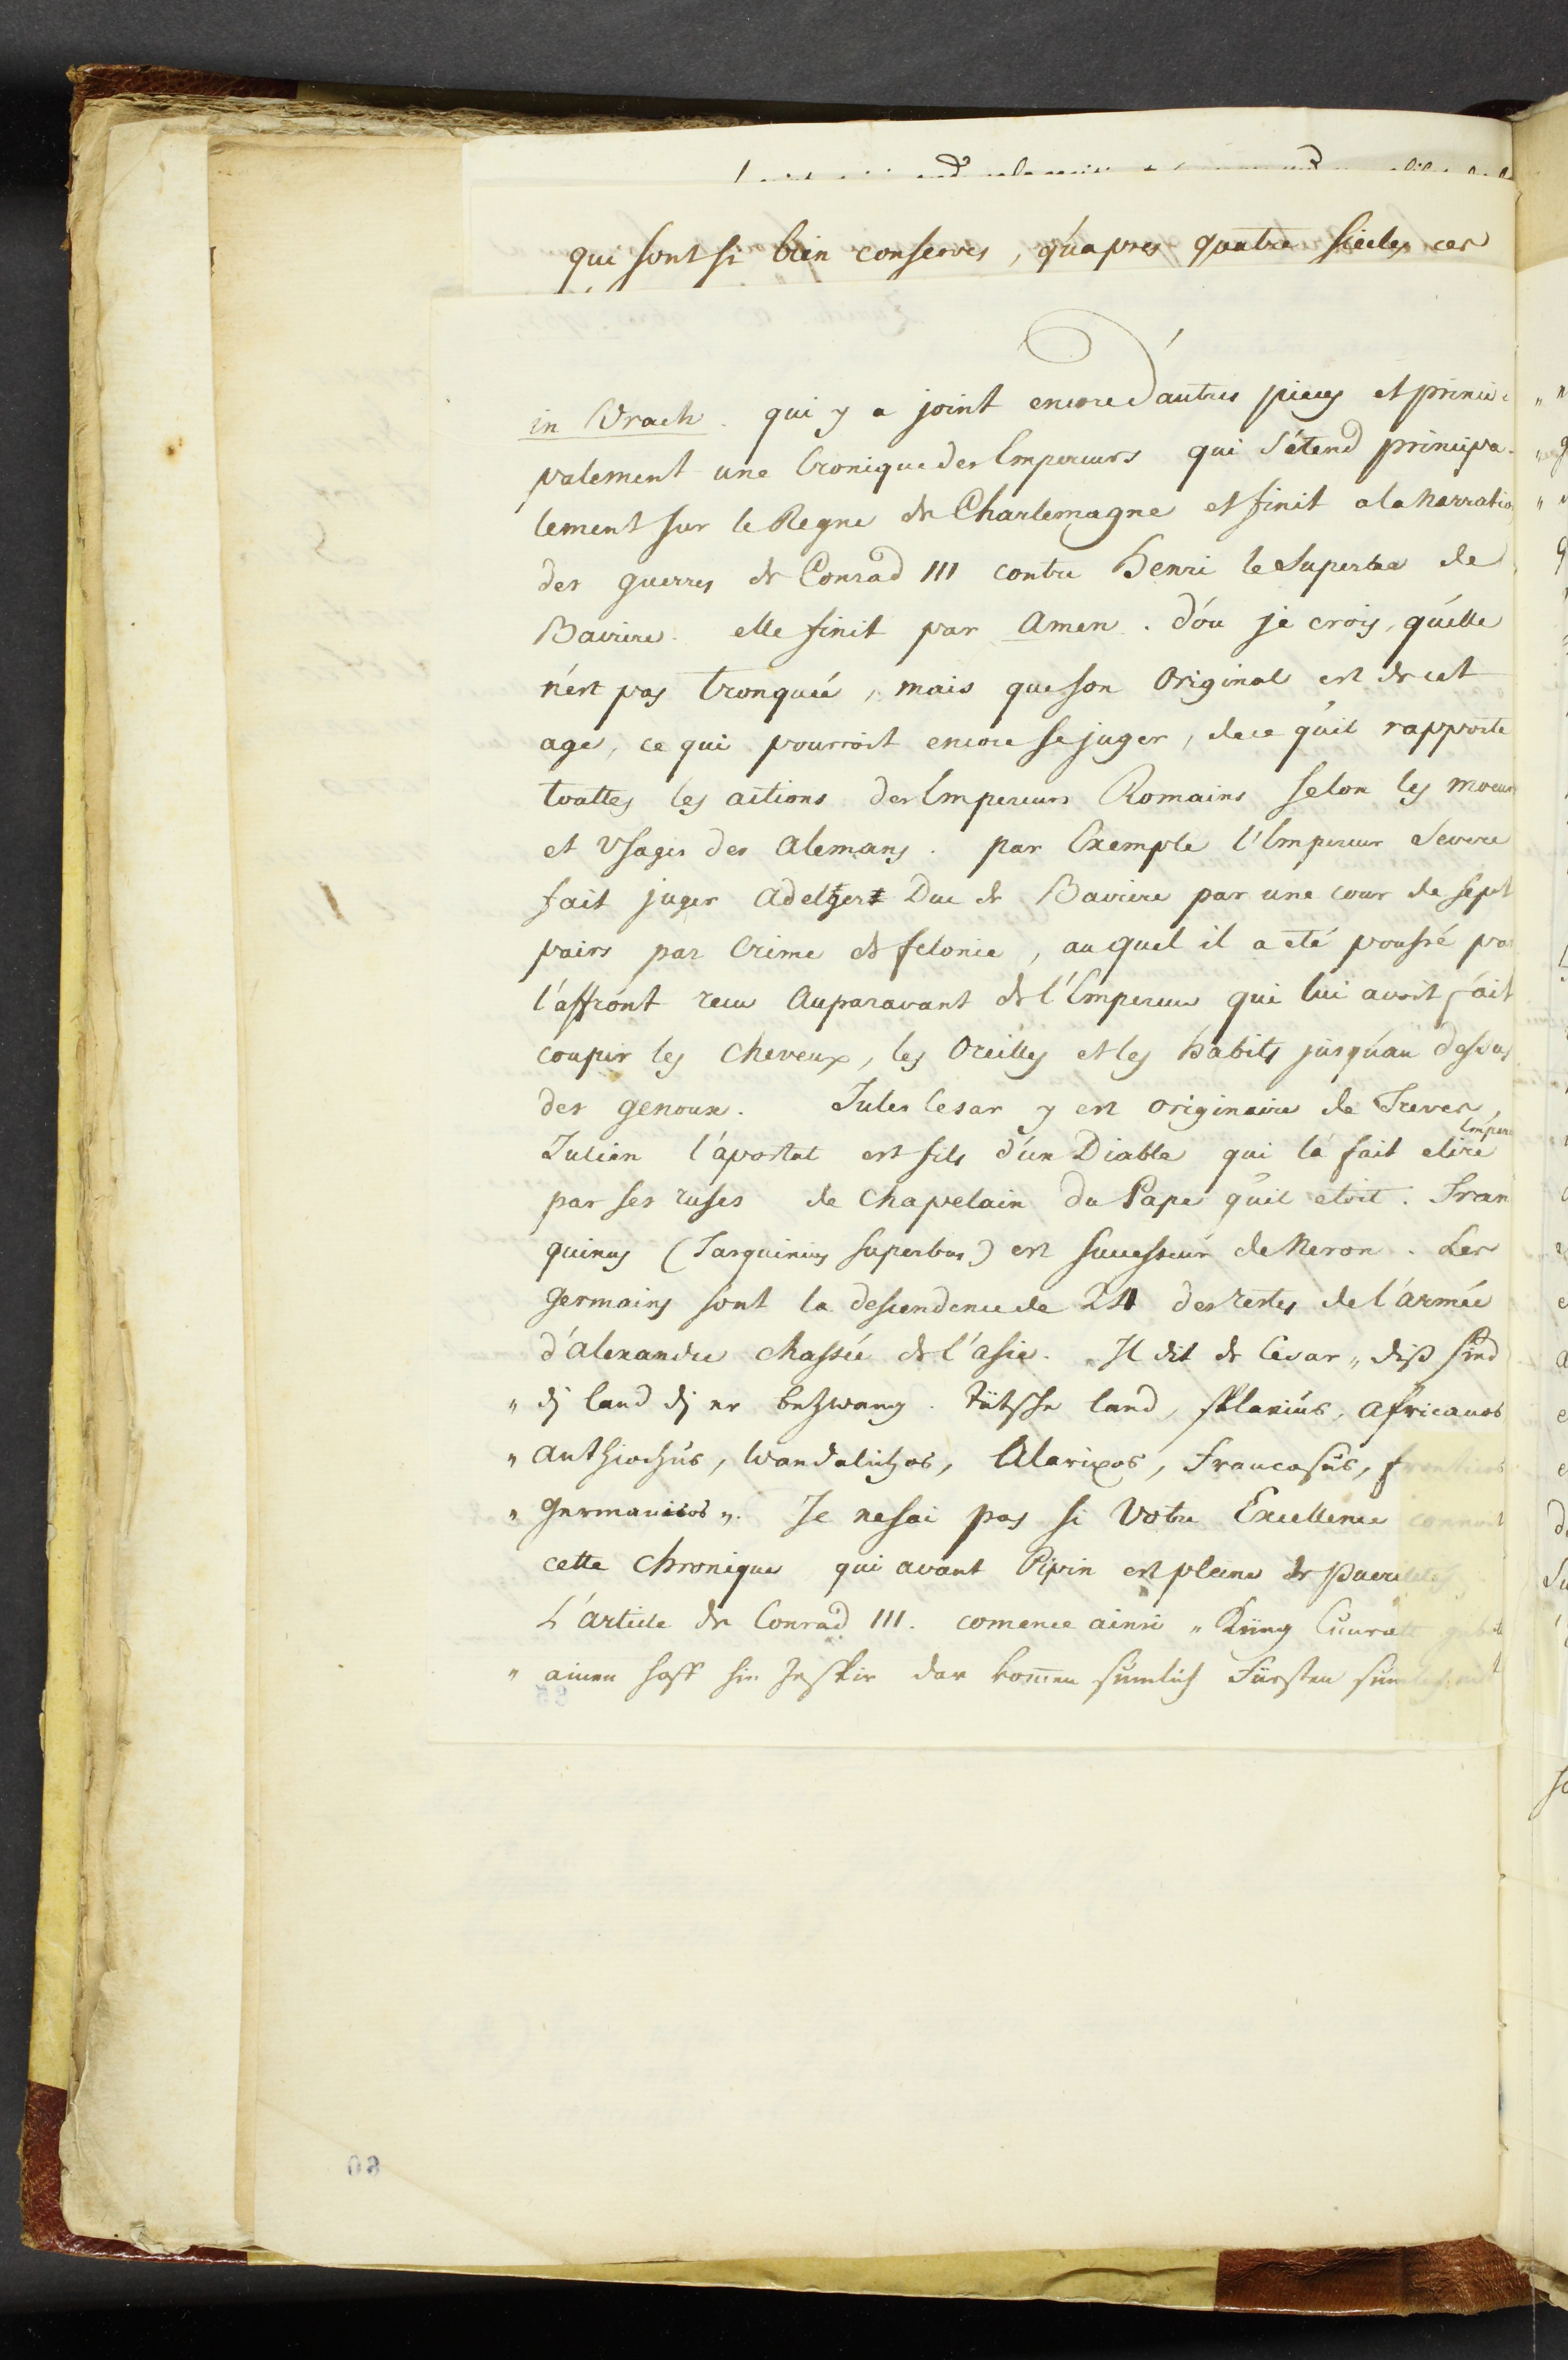 qui sont si bien conserves, qu'apres quatre siecles ces
in Urach. qui y a joint encore d'autres pieces et princi
palement une Cronique des Empereurs qui s'étend principa-
lement sur le Regne de Charlemagne et finit a la Narratio
des guerres de Conrad III contre Henri le Superbe de
Baviere. elle finit par Amen. d'ou je crois, qu'elle
n'est pas tronquée, mais que son Original est de cet
age, ce qui pourroit encore se juger, de ce qu'il rapporte
touttes les actions des Empereurs Romains selon les moeurs
et Usages des Alemans. par Exemple l'Empereur Severe
fait juger Adelger Duc de Baviere par une cour de sept
pairs par Crime de felonie, au quel il a eté poussé pa
l'affront recu Auparavant de l'Empereur qui lui avoit fait
couper les cheveux, les Oreilles et les habits jusqu'au dessus
des genoux. Jules Cesar y est originaire de Treves,
Julien l'apostat est fils d'un Diable qui l'a fait elire Empere
par ses ruses de Chapelain du Pape qu'il etoit. Tran
quinus (Tarquinius superbus) est successeur de Neron. Les
Germains sont la descendence de 24 des restes de l'armée
d'Alexandre chassée de l'Asie. Il dit de Cesar „diß sind
„ dj land dj er bezwang. Tütsche land, Africanos
„ Anthiochus, Wandalichos, Alaricos, Francosus,
„ Germanicos". Je ne sai pas si Votre Excellence connoit
cette Chronique qui avant Pipin est pleine de puerilités
L'article de Conrad III. comence ainsi „Küng Cunratt gebott
„ ainen hoff hin ze dar komen sumlich Fürsten